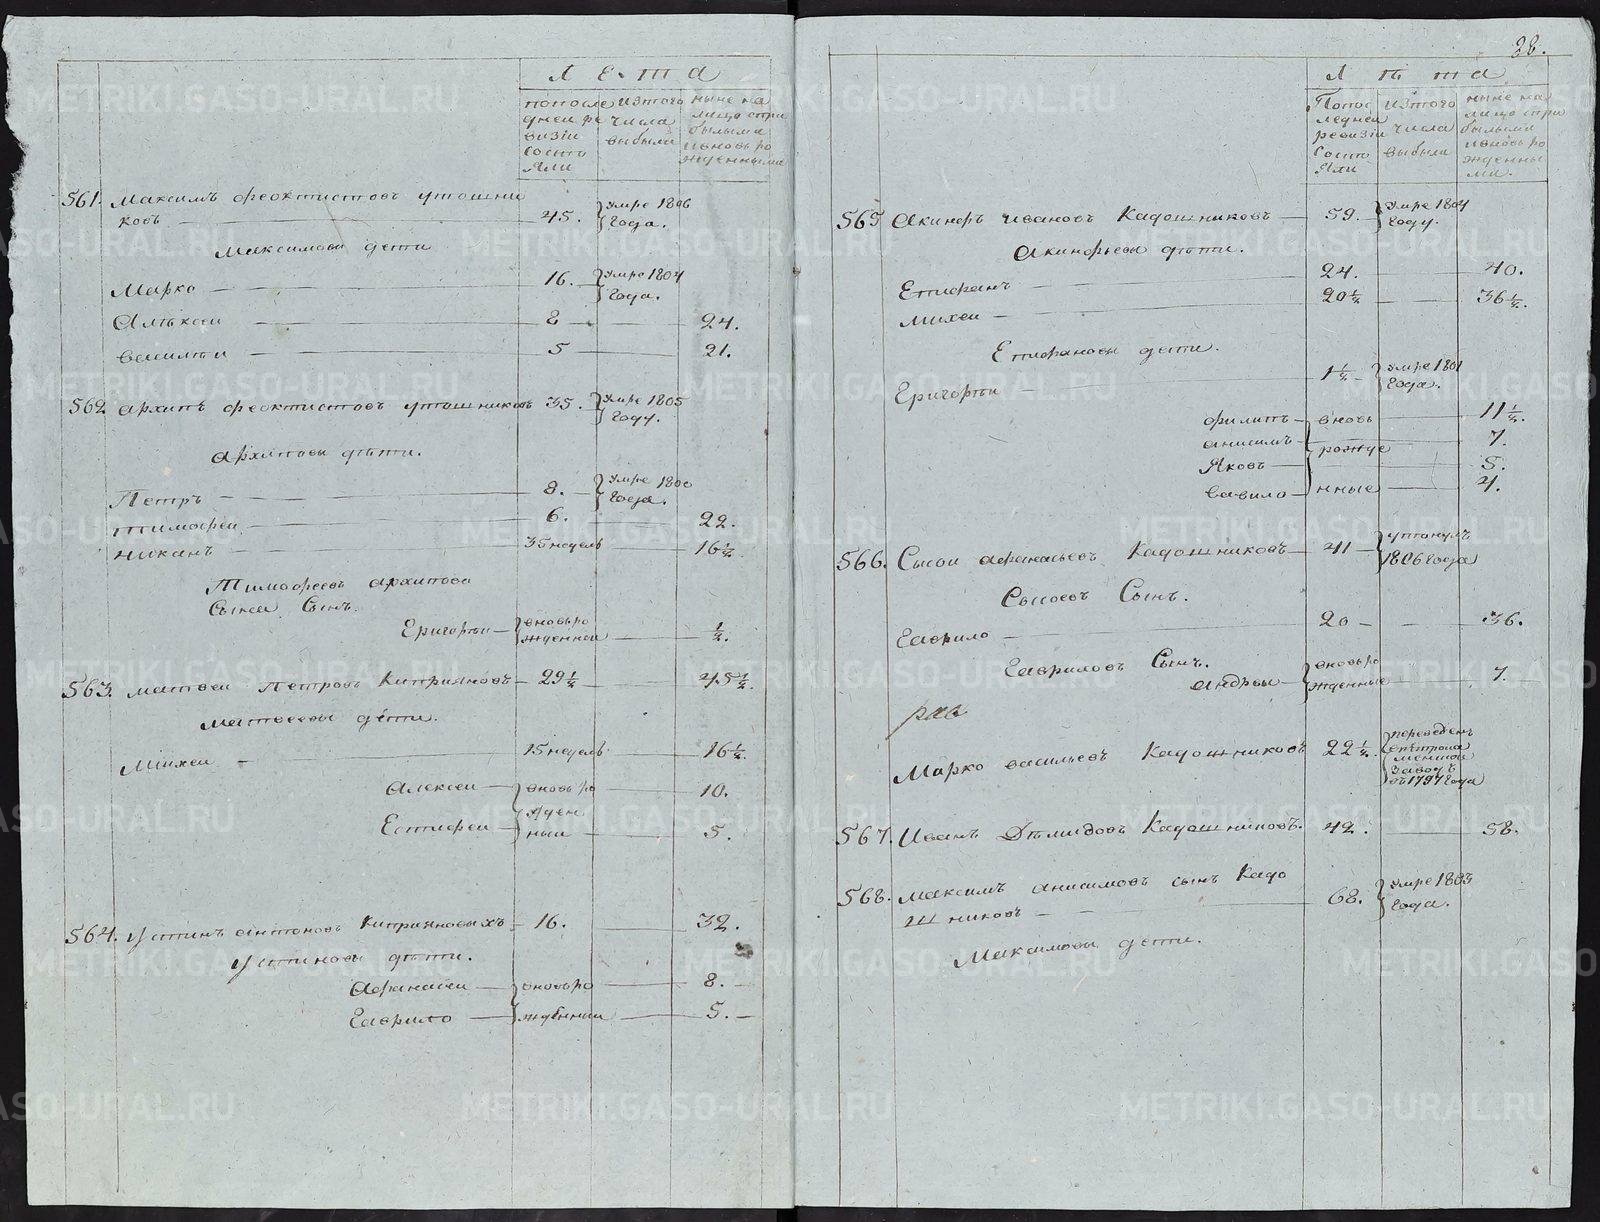 Лета
попосле
дней ре
визiи
состо
яли
изтого
числа
выбыли
ныне на
лицо спри
былыми
ивновь ро
жденными
561. Максимъ феоктистовъ утошни
ковъ 45. умре 1806
года.
Максимовы дети
Марко 16. умре 1804
года.
Алѣксеи 8 24.
василѣи 5 21.
562 архипъ феоктистовъ утошниковъ 35. умре 1805
году.
архиповы дѣти.
Петръ 8. умре 1800
года.
тимофеи 6. 22.
никанъ 35 недель 16 1/2.
Тимофеевъ архипова
сынеи Сынъ.
Григорѣи вновьро
жденнои 1/2.
563. матвеи Петровъ Киприяновъ 29 1/2 45 1/2.
матвеевы дети.
Михеи 15 недель 16 1/2.
Алексеи вновьро 10.
жден
Естифеи ныи 5.
564. устинъ антоновъ Киприяновыхъ 16. 32.
устиновы дѣти.
Афанасеи вновьро 8.
Гаврило жденныи 5.
28.
Лѣта
Попос
ледней
ревизiи
состо
яли
изтого
числа
выбыли
ныне на
лицо спри
былыми
ивновь ро
жденны
ми.
565 Акинфъ ивановъ Кадошниковъ 59. умре 1804
году.
Акинфьевы дѣти.
Епифанъ 24. 40.
михеи 20 1/2 36 1/2.
Епифановы дети.
Григорѣи 1 1/2 умре 1801
года.
филипъ вновь 11 1/2.
анисимъ рожде 7.
Яковъ 5.
вавило нные 4.
566. Сысои афанасьевъ Кадошниковъ 41 утонулъ
1806 года
Сысоевъ Сынъ.
Гаврило 20 36.
Гавриловъ Сынъ.
андреи вновьро
жденные 7.
Марко васильевъ Кадошниковъ 22 1/2. переведенъ
заводъ
въ 1797 года
567. Иванъ Дѣмидовъ Кадошниковъ. 42. 58.
568. максимъ анисимовъ сынъ Кадо
шниковъ 68. умре 1803
года.
Максимовы дети.
METRIKI.GASO-URAL.RU